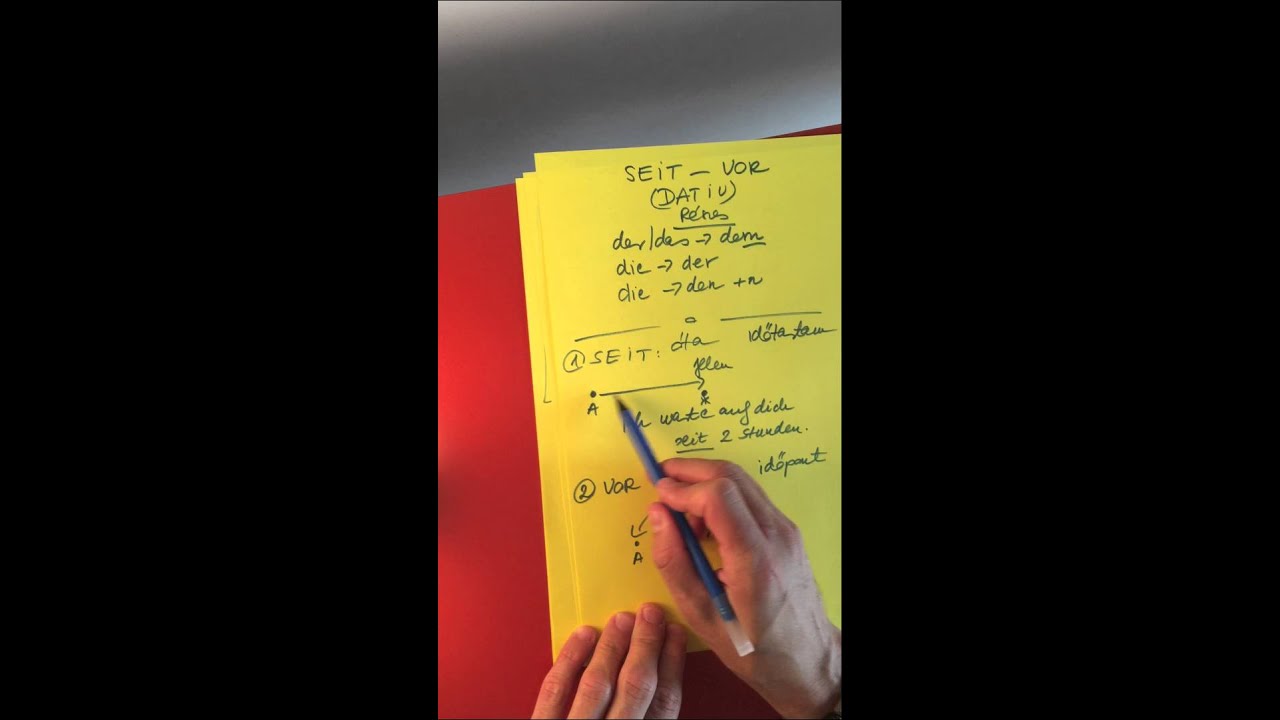 SEiT – VOR
(DATiV)
Réres
der/das → dem
die → der
die → den +n
① SEiT: óta időtartam
jelen
A
ich warte auf dich
seit 2 Stunden.
② VOR időpont
A